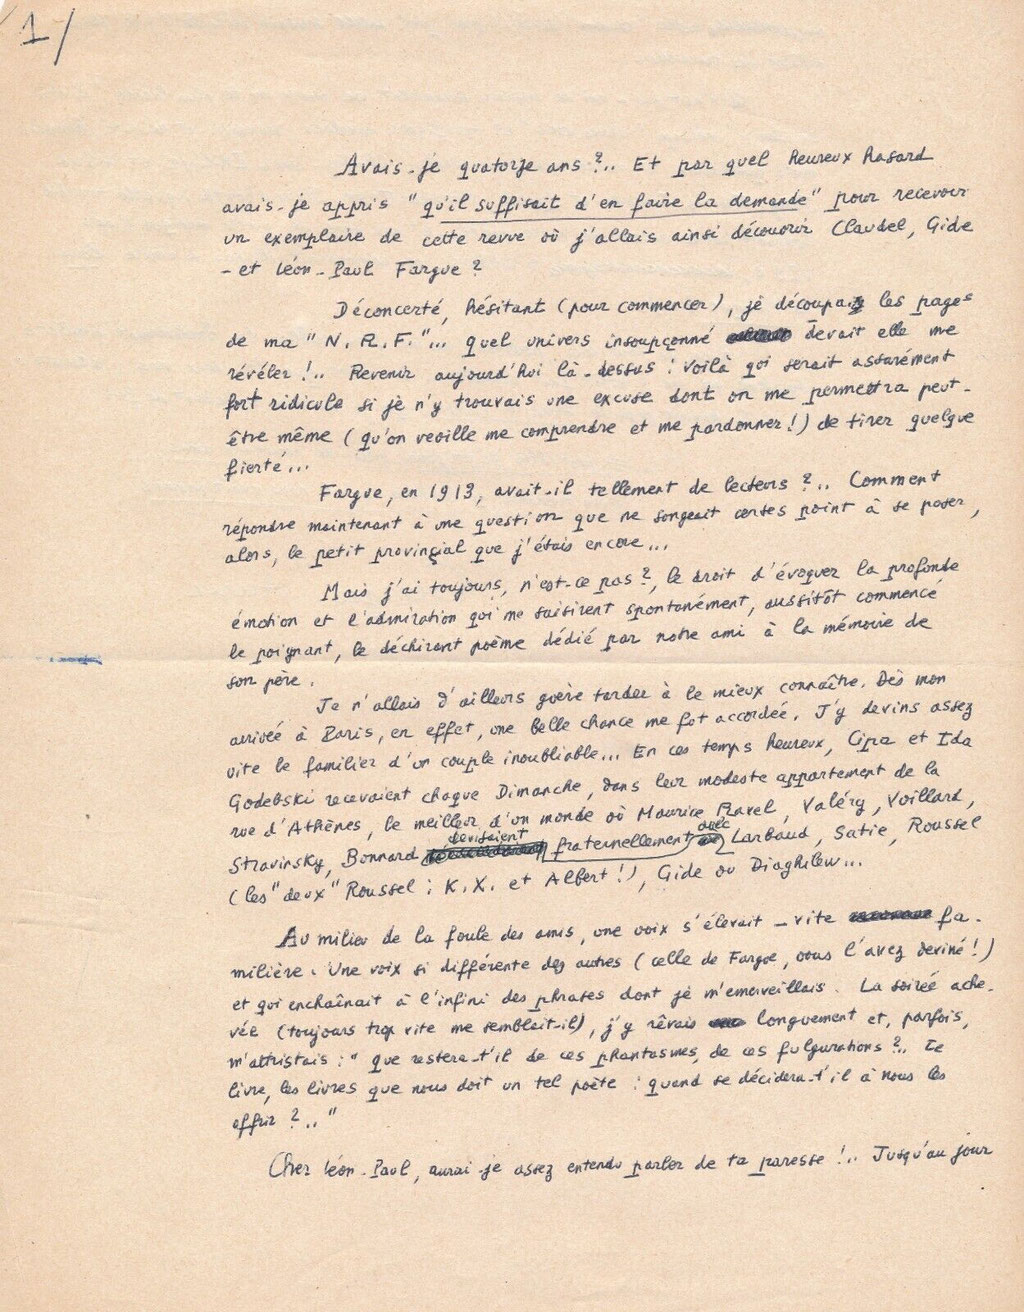 1/
Avais-je quatorze ans ?.. Et par quel heureux hasard
avais-je appris "qu'il suffisait d'en faire la demande" pour recevoir
un exemplaire de cette revue où j'allais ainsi découvrir Claudel, Gide
- et Léon-Paul Fargue ?
Déconcerté, hésitant (pour commencer), je découpais les pages
de ma "N.R.F."... quel univers insoupçonné devait elle me
révéler !.. Revenir aujourd'hui là-dessus : voilà qui serait assurément
fort ridicule si je n'y trouvais une excuse dont on me permettra peut-
être même (qu'on veuille me comprendre et me pardonner !) de tirer quelque
fierté...
Fargue, en 1913, avait-il tellement de lecteurs ?.. Comment
répondre maintenant à une question que ne songeait certes point à se poser,
alors, le petit provinçial que j'étais encore...
Mais j'ai toujours, n'est-ce pas ?, le droit d'évoquer la profonde
émotion et l'admiration qui me saisirent spontanément, aussitôt commencé
le poignant, le déchirant poème dédié par notre ami à la mémoire de
son père.
Je n'allais d'ailleurs guère tarder à le mieux connaître. Dès mon
arrivée à Paris, en effet, une belle chance me fut accordée. J'y devins assez
vite le familier d'un couple inoubliable... En ces temps heureux, Cipa et Ida
Godebski recevaient chaque Dimanche, dans leur modeste appartement de la
rue d'Athènes, le meilleur d'un monde où Maurice Ravel, Valéry, Vuillard,
Stravinsky, Bonnard devisaient fraternellement avec Larbaud, Satie, Roussel
(les "deux" Roussel : K.X. et Albert !), Gide ou Diaghilew...
Au milieu de la foule des amis, une voix s'élevait - vite fa-
milière. Une voix si différente des autres (celle de Fargue, vous l'avez deviné !)
et qui enchaînait à l'infini des phrases dont je m'émerveillais. La soirée ache-
vée (toujours trop vite me semblait-il), j'y rêvais longuement et, parfois,
m'attristais : "que restera-t'il de ces phantasmes, de ces fulgurations ?.. Le
livre, les livres que nous doit un tel poète : quand se décidera-t'il à nous les
offrir ?.."
Cher Léon-Paul, aurai-je assez entendu parler de ta paresse !.. Jusqu'au jour